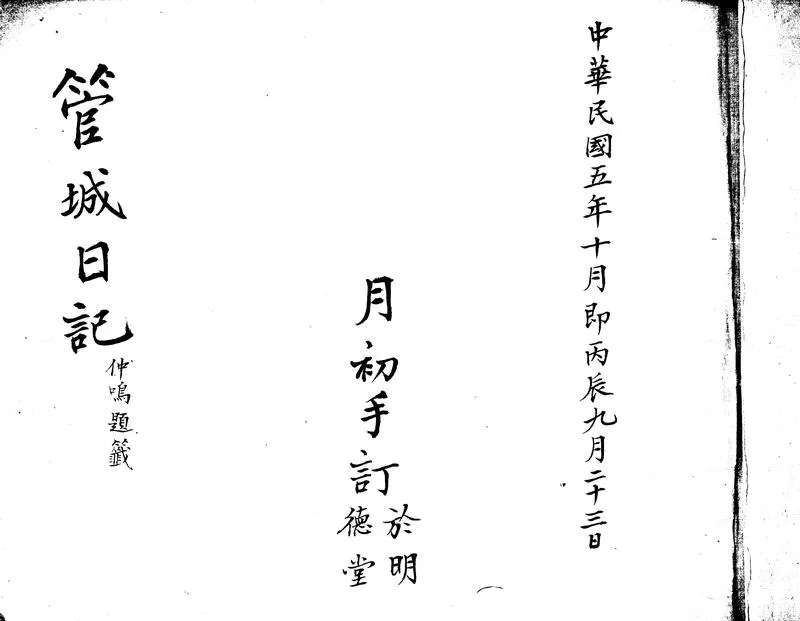 中華民國五年十月即丙辰九月二十三日
月初手訂
於明
德堂
管城日記
仲鳴題籤